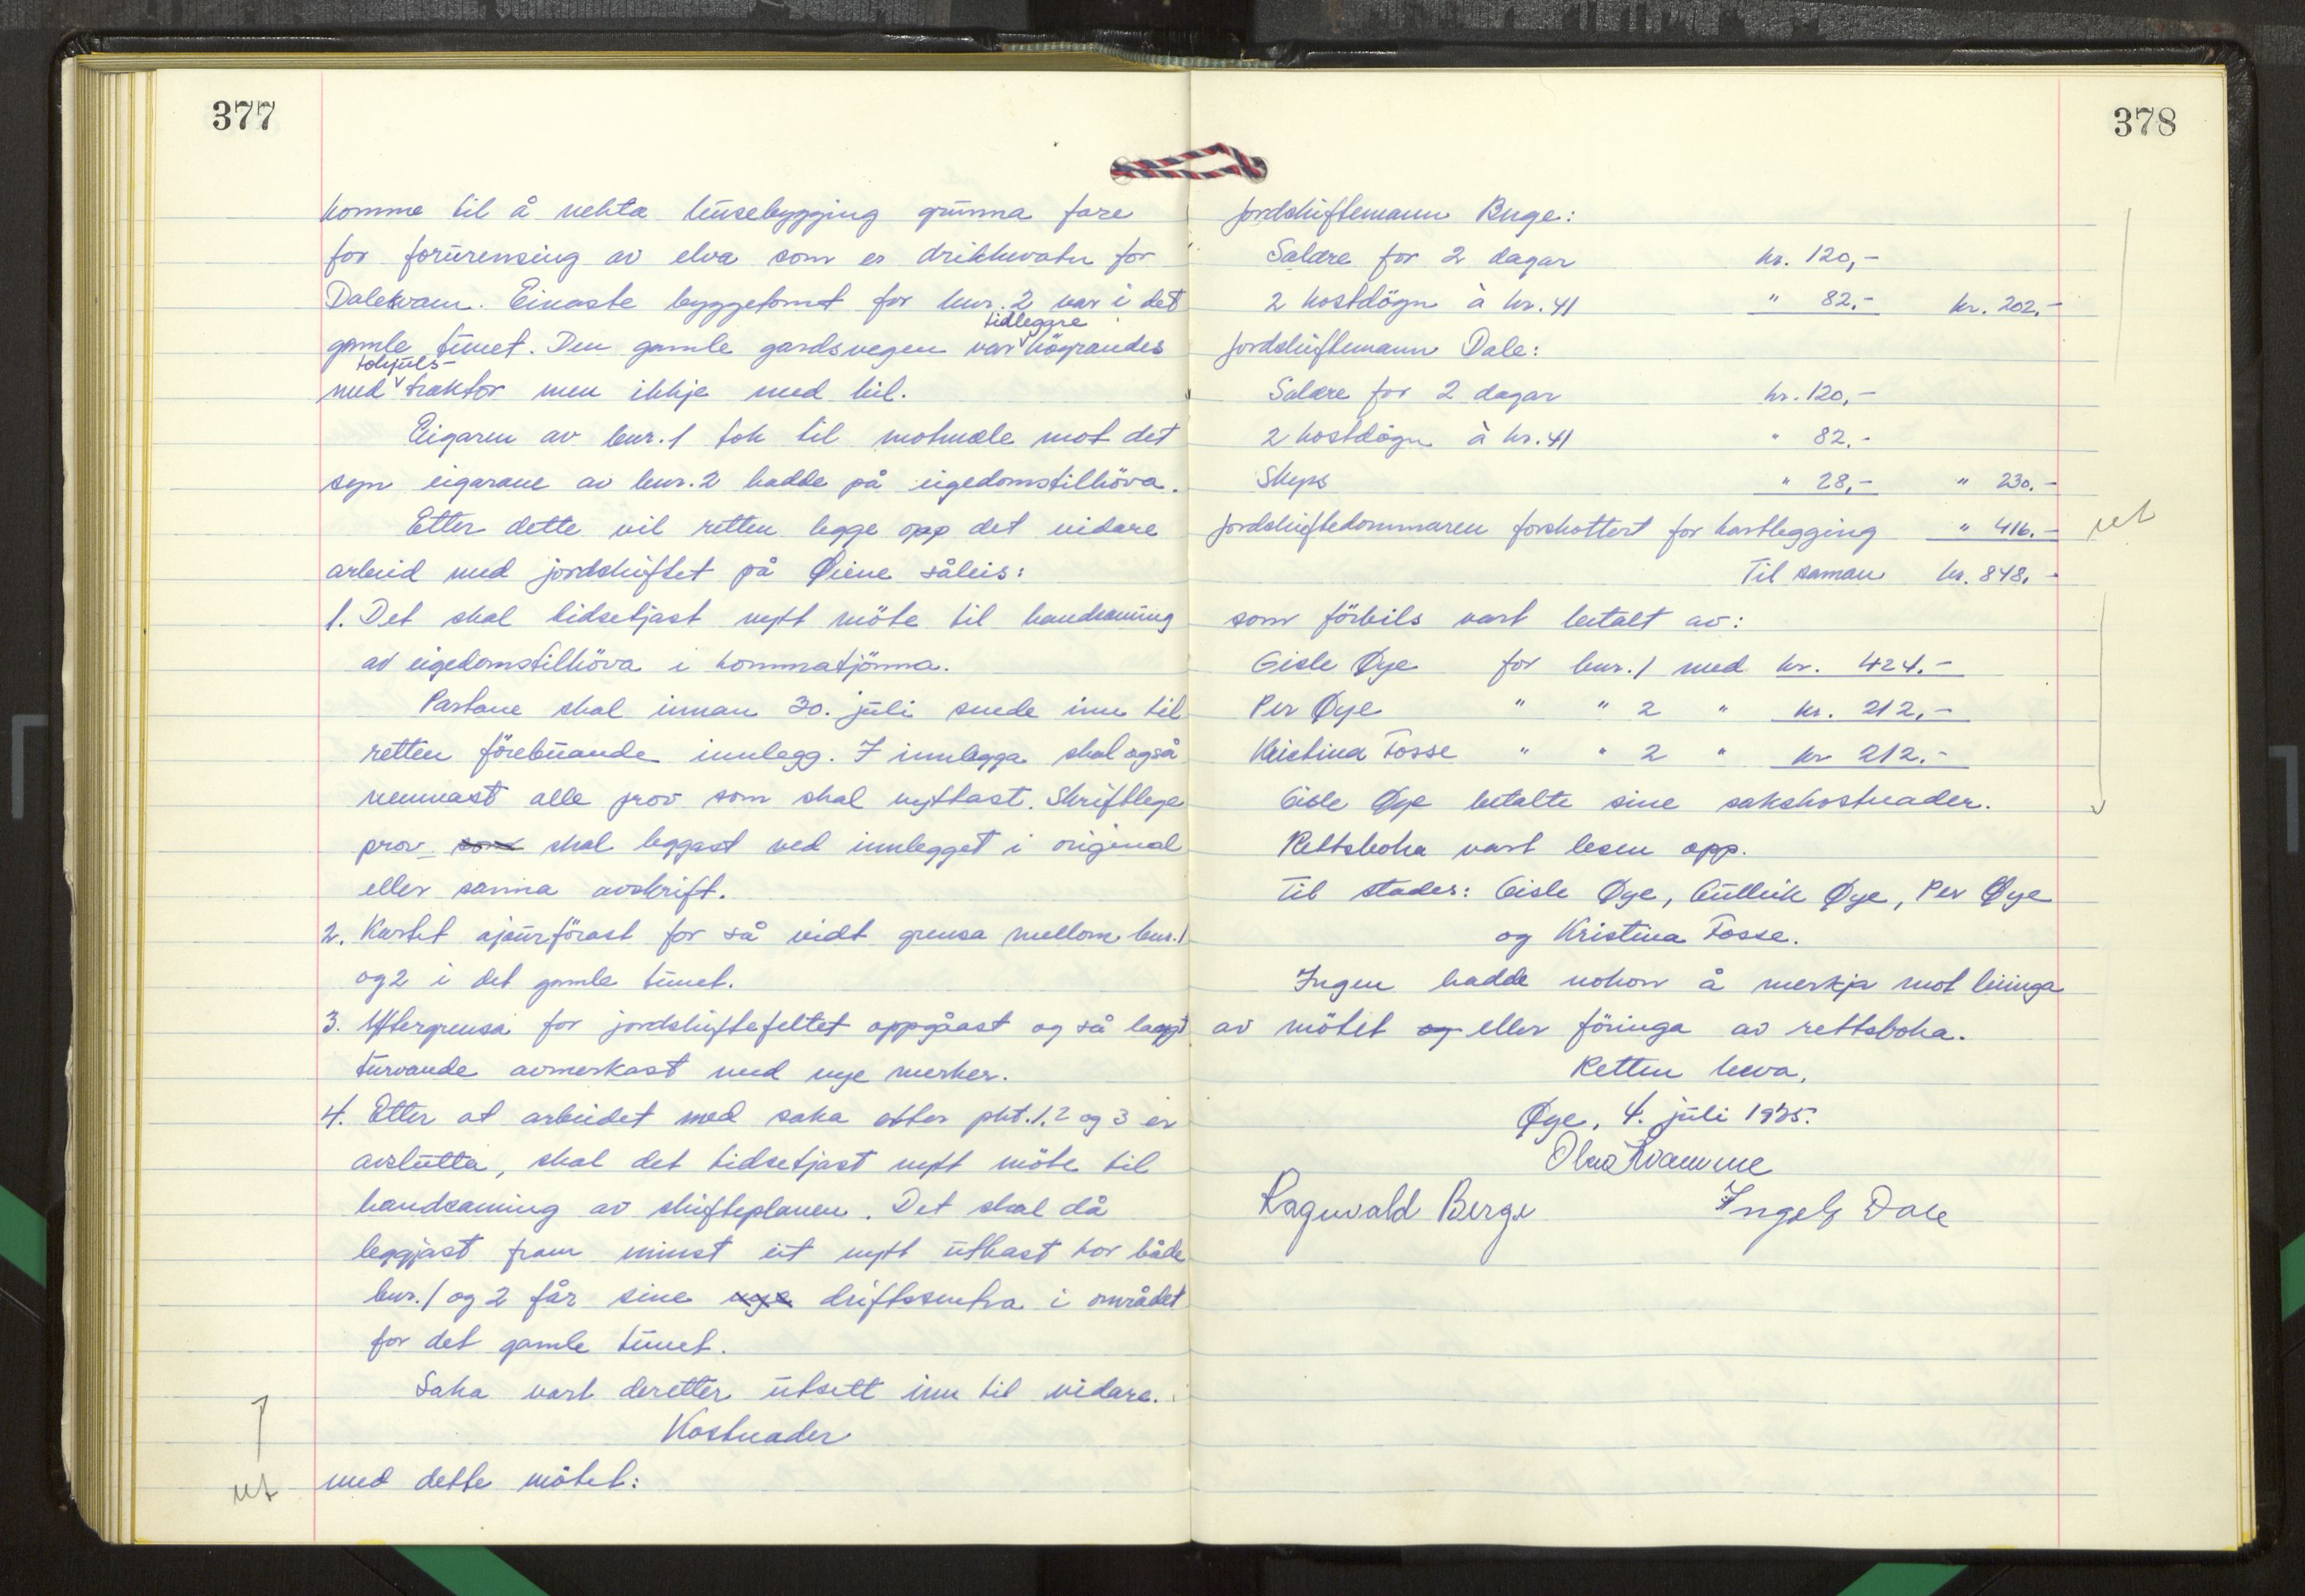 377
komme til å nekta husebygging grunna fare
for forureinsing av elva som er drikkevatn for
Dalekvam. Einaste byggetomt for bnr. 2 var i det
gamle tunet. Den gamle gardsvegen var tidlegare kögrandes
med tohjuls- traktor men ikkje med bil.
Eigaren av bnr. 1 tok til motmæle mot det
syn eigarane av bnr. 2 hadde på eigedomstilhöva.
Etter dette vil retten legge opp det vidare
arbeid med jordskiftet på Øiene såleis:
1. Det skal tidsetjast nytt möte til handsaming
av eigedomstilhöva i kommatjönna.
Partane skal innan 30. juli sende inn til
retten förebuande innlegg. I innlegga skal også
nemnast alle prov som skal nyttast. Skriftlege
prov som skal leggast ved innlegget i original
eller sanna avskrift.
2. Kartet ajourförast for så vidt grensa mellom bnr. 1
og 2 i det gamle tunet.
3. Yttergrensa for jordskiftefeltet oppgåast og så langt
turvande avmerkast med nye merker.
4. Etter at arbeidet med saka etter pkt. 1, 2 og 3 er
avslutta, skal det tidsetjast nytt möte til
handsaming av skifteplanen. Det skal då
leggjast fram minst eit nytt utkast kor både
bnr. 1 og 2 får sine nye driftssentra i området
for det gamle tunet.
Saka vart deretter utsett inn til vidare.
Kostnader
ut
med dette mötet:
378
Jordskiftemann Berge:
Salære for 2 dagar kr. 120,-
2 kostdögn à kr. 41 " 82.- kr. 202.-
Jordskiftemann Dale:
Salære for 2 dagar kr. 120,-
2 kostdögn à kr. 41 " 82.-
Skyss " 28,- " 230.-
Jordskiftedommaren forskottert for kartlegging " 416.- ut
Til saman kr. 848.-
som förbils vart betalt av:
Gisle Øye for bnr. 1 med kr. 424.-
Per Øye " " 2 " kr. 212,-
Kristina Fosse " " 2 " kr 212.-
Gisle Øye betalte sine sakskostnader.
Rettsboka vart lesen opp.
Til stades: Gisle Øye, Gullik Øye, Per Øye
og Kristina Fosse.
Ingen hadde nokon å merkja mot leiinga
av mötet og eller föringa av rettsboka.
Retten heva.
Øye, 4. juli 1975.
Olav Kvamme
Ragnvald Berge Ingolf Dale